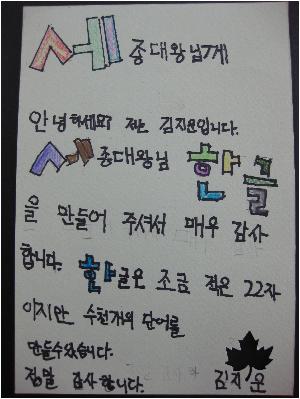 세종대왕님께
안녕하세요? 저는 김지윤입니다.
세종대왕님 한글
을 만들어 주셔서 매우 감사
합니다. 한글은 조금 적은 22자
이지만 수천개의 단어를
만들수있습니다.
정말 감사합니다. 김지윤